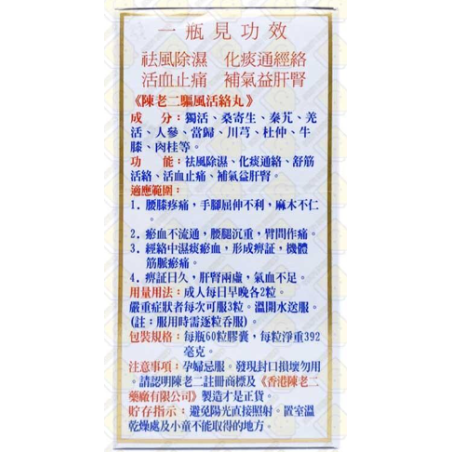 一瓶見功效
祛風除濕 化痰通經絡
活血止痛 補氣益肝腎
《陳老二驅風活絡丸》
成 分：獨活、桑寄生、秦艽、羌
活、人參、當歸、川芎、杜仲、牛
膝、肉桂等。
功 能：祛風除濕、化痰通絡、舒筋
活絡、活血止痛、補氣益肝腎。
適應範圍：
1．腰膝疼痛，手腳屈伸不利，麻木不仁
。
2．瘀血不流通，腰腿沉重，臂間作痛。
3．經絡中濕痰瘀血，形成痹証，機體
筋脈瘀痛。
4．痹証日久，肝腎兩虛，氣血不足。
用量用法：成人每日早晚各2粒。
嚴重症狀者每次可服3粒。溫開水送服。
(註：服用時需逐粒吞服)
包裝規格：每瓶60粒膠囊，每粒淨重392
毫克。
注意事項：孕婦忌服。發現封口損壞勿用
。請認明陳老二註冊商標及《香港陳老二
藥廠有限公司》製造才是正貨。
貯存指示：避免陽光直接照射。置室溫
乾燥處及小童不能取得的地方。